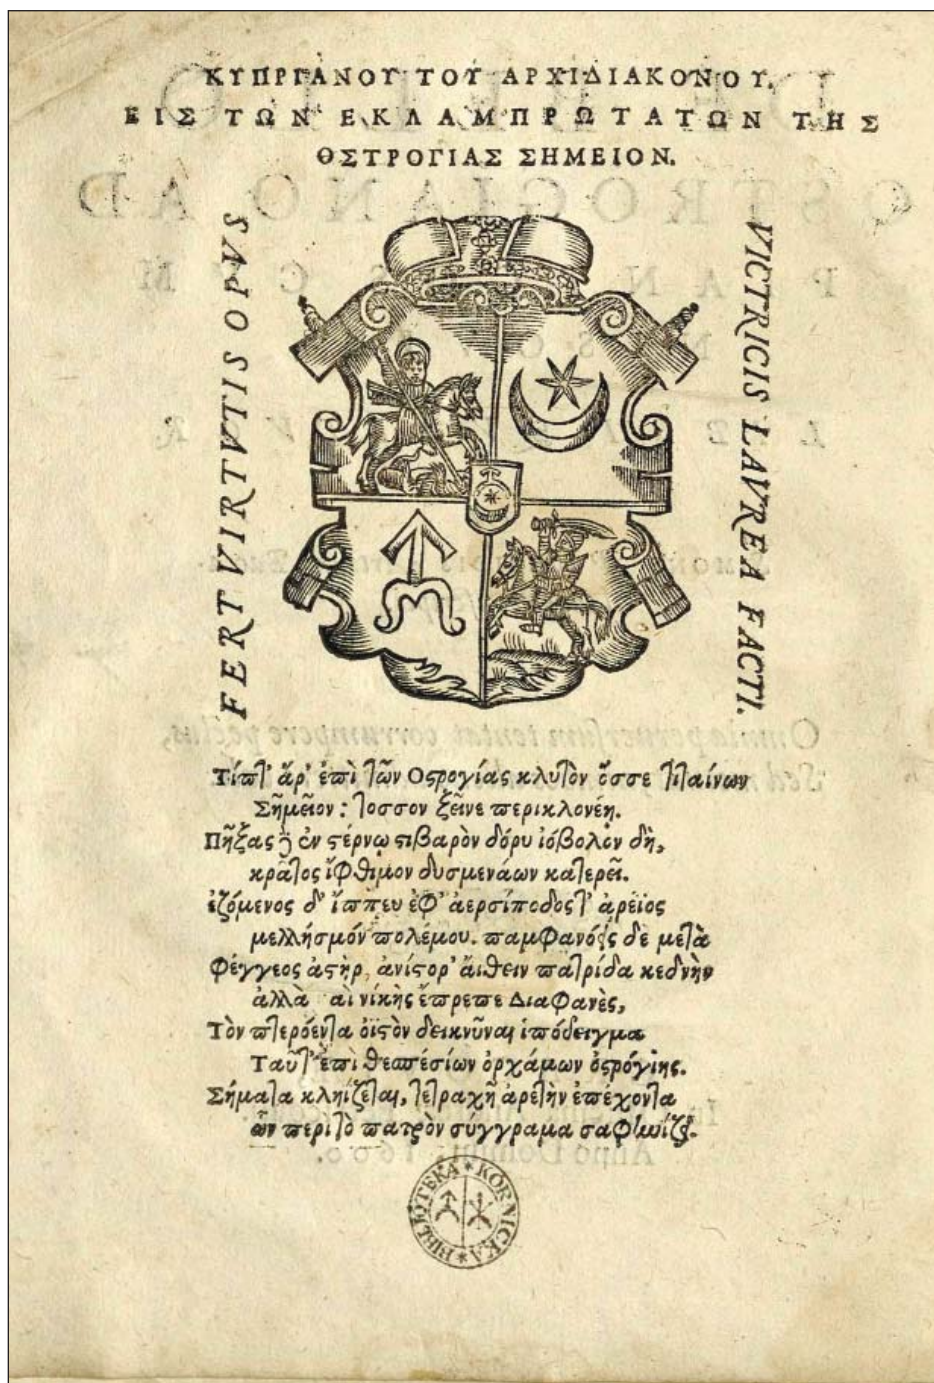 ΚΥΠΡΓΑΝΟΥ ΤΟΥ ΑΡΧΙΔΙΑΚΟΝΟΥ.
ΕΙΣ ΤΩΝ ΕΚΛΑΜΠΡΩΤΑΤΩΝ ΤΗΣ
ΘΣΤΡΟΓΙΑΣ ΣΗΜΕΙΟΝ.
FERT VIRTVTIS OPVS
VICTRICIS LAVREA FACTI.
Τίπτ' ἄρ' ἐπὶ τῶν Οςρογίας κλυτὸν ὄσσε τιταίνων
Σῆμεῖον: τοσσον ξεῖνε περικλονέῃ.
Πῆξας ἐν ςέρνῳ ςιβαρὸν δόρυ ἰόβολον δὴ,
κράτος ἴφθιμον δυσμενάων κατερεῖ.
ἑζόμενος δ' ἵππευ ἐφ' ἀερσίποδος τ' ἀρεῖος
μελλήσμόν πολέμου. δὲ μετὰ
Φέγγεος ἀςὴρ, ἀνίςορ' ἄιθειν πατρίδα κεδνὴν
ἀλλὰ αἱ νίκὴς ἔπρεπε Διαφανὲς,
Τὸν πτερόεντα οἴςὸν δεικνῦναι ὑπόδειγμα
Ταῦτ' ἐπὶ θεσπέσίων ὀρχάμων ὀςρόγιης.
Σήματα κληίζεται, τετραχῆ ἀρετὴν ἐπέχοντα
ὧν περὶ τὸ πατρὸν σύγγραμα
BIBLIOTEKA * KÓRNICKA *